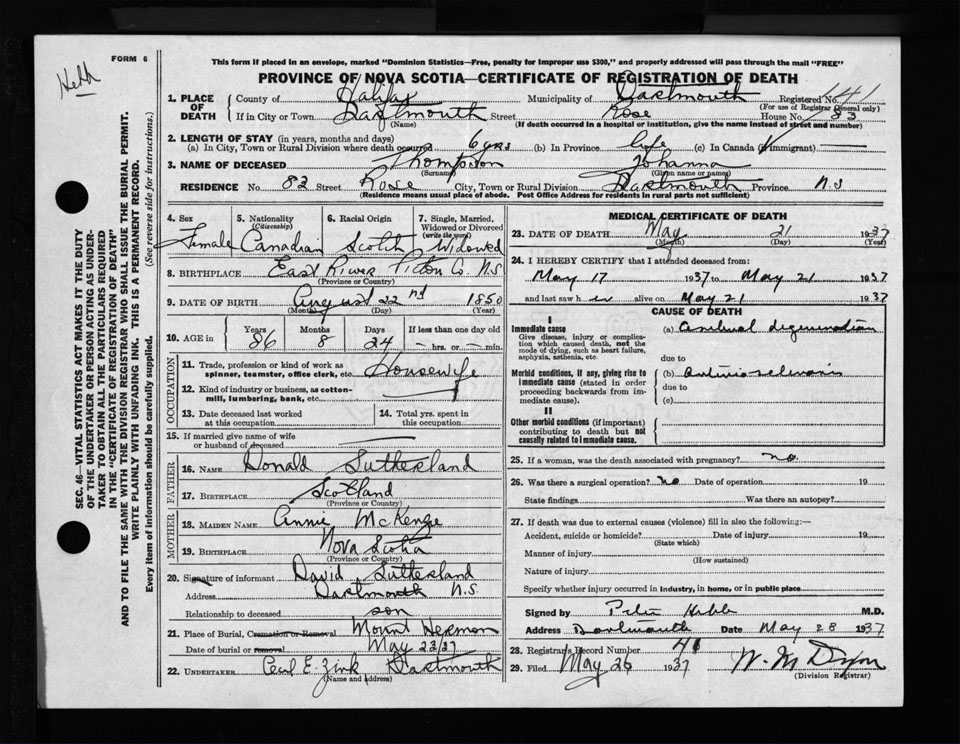 FORM 6
Hebb
This form if placed in an envelope, marked "Dominion Statistics—Free, penalty for improper use $300," and properly addressed will pass through the mail "FREE"
PROVINCE OF NOVA SCOTIA—CERTIFICATE OF REGISTRATION OF DEATH
1. PLACE OF DEATH { County of Halifax Municipality of Dartmouth Registered No. 41
(For use of Registrar General only)
If in City or Town Dartmouth Street Rose House No. 83
(Name) (If death occurred in a hospital or institution, give the name instead of street and number)
2. LENGTH OF STAY (in years, months and days)
(a) In City, Town or Rural Division where death occurred 6 yrs (b) In Province life (c) In Canada (if immigrant)
3. NAME OF DECEASED Thompson Johanna
(Surname) (Given name or names)
RESIDENCE No. 82 Street Rose City, Town or Rural Division Dartmouth Province N.S
(Residence means usual place of abode. Post Office Address for residents in rural parts not sufficient)
4. Sex Female
5. Nationality (Citizenship) Canadian
6. Racial Origin Scotch
7. Single, Married, Widowed or Divorced (write the word) Widowed
8. BIRTHPLACE East River Pictou Co. N.S
(Province or Country)
9. DATE OF BIRTH August 22nd 1850
(Month) (Day) (Year)
10. AGE in Years Months Days If less than one day old
86 8 24 — hrs. or — min.
OCCUPATION
11. Trade, profession or kind of work as spinner, teamster, office clerk, etc. Housewife
12. Kind of industry or business, as cotton-mill, lumbering, bank, etc.
13. Date deceased last worked at this occupation
14. Total yrs. spent in this occupation
15. If married give name of wife or husband of deceased
FATHER
16. NAME Donald Sutherland
17. BIRTHPLACE Scotland
(Province or Country)
MOTHER
18. MAIDEN NAME Annie McKenzie
19. BIRTHPLACE Nova Scotia
(Province or Country)
20. Signature of informant David Sutherland
Address Dartmouth N.S.
Relationship to deceased son
21. Place of Burial, Cremation or Removal Mount Hermon
Date of burial or removal May 23/37
22. UNDERTAKER Cecil E. Zink Dartmouth
(Name and address)
MEDICAL CERTIFICATE OF DEATH
23. DATE OF DEATH May 21 1937
(Month) (Day) (Year)
24. I HEREBY CERTIFY that I attended deceased from:
May 17 1937 to May 21 1937
and last saw her alive on May 21 1937
CAUSE OF DEATH
I
Immediate cause
Give disease, injury or complication which caused death, not the mode of dying, such as heart failure, asphyxia, asthenia, etc.
(a) Cerebral degeneration
due to
Morbid conditions, if any, giving rise to immediate cause (stated in order proceeding backwards from immediate cause).
(b) Arterio-sclerosis
due to
(c)
II
Other morbid conditions (if important) contributing to death but not causally related to immediate cause.
25. If a woman, was the death associated with pregnancy? no.
26. Was there a surgical operation? no Date of operation 19
State findings Was there an autopsy?
27. If death was due to external causes (violence) fill in also the following:—
Accident, suicide or homicide? Date of injury 19
(State which)
Manner of injury
(How sustained)
Nature of injury
Specify whether injury occurred in industry, in home, or in public place
Signed by Peter Hebb M.D.
Address Dartmouth Date May 28 1937
28. Registrar's Record Number 41
29. Filed May 26 1937 W. M. Dyson
(Division Registrar)
SEC. 46—VITAL STATISTICS ACT MAKES IT THE DUTY
OF THE UNDERTAKER OR PERSON ACTING AS UNDER-
TAKER TO OBTAIN ALL THE PARTICULARS REQUIRED
IN THE "CERTIFICATE OF REGISTRATION OF DEATH"
AND TO FILE THE SAME WITH THE DIVISION REGISTRAR WHO SHALL ISSUE THE BURIAL PERMIT.
WRITE PLAINLY WITH UNFADING INK. THIS IS A PERMANENT RECORD.
Every item of information should be carefully supplied. (See reverse side for instructions.)